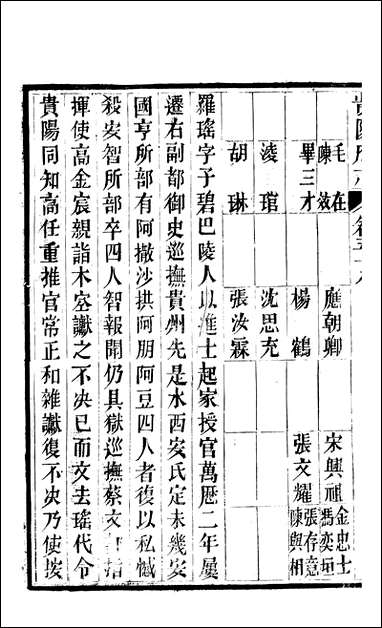 貴陽府志 卷五十八
毛在 陳效 應朝卿 宋興祖 金忠士 馮奕垣
畢三才 楊鶴 張文耀 張存意 陳與相
淩琯 沈思充
胡琳 張汝霖
羅瑤字子碧巴陵人以進士起家授官萬厯二年屢
遷右副都御史巡撫貴州先是水西安氏定未幾安
國亨所部有阿撒沙拱阿朋阿豆四人者復以私憾
殺安智所部卒四人智報聞仍具獄巡撫蔡文指
揮使高金宸親詣木空讞之不决已而文去瑤代令
貴陽同知高任重推官常正和雜讞復不决乃使埃